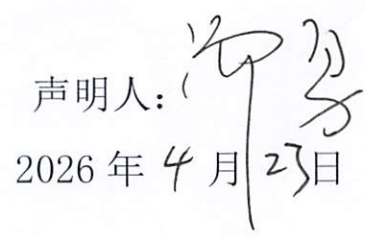 声明人：
2026 年 4 月 23 日